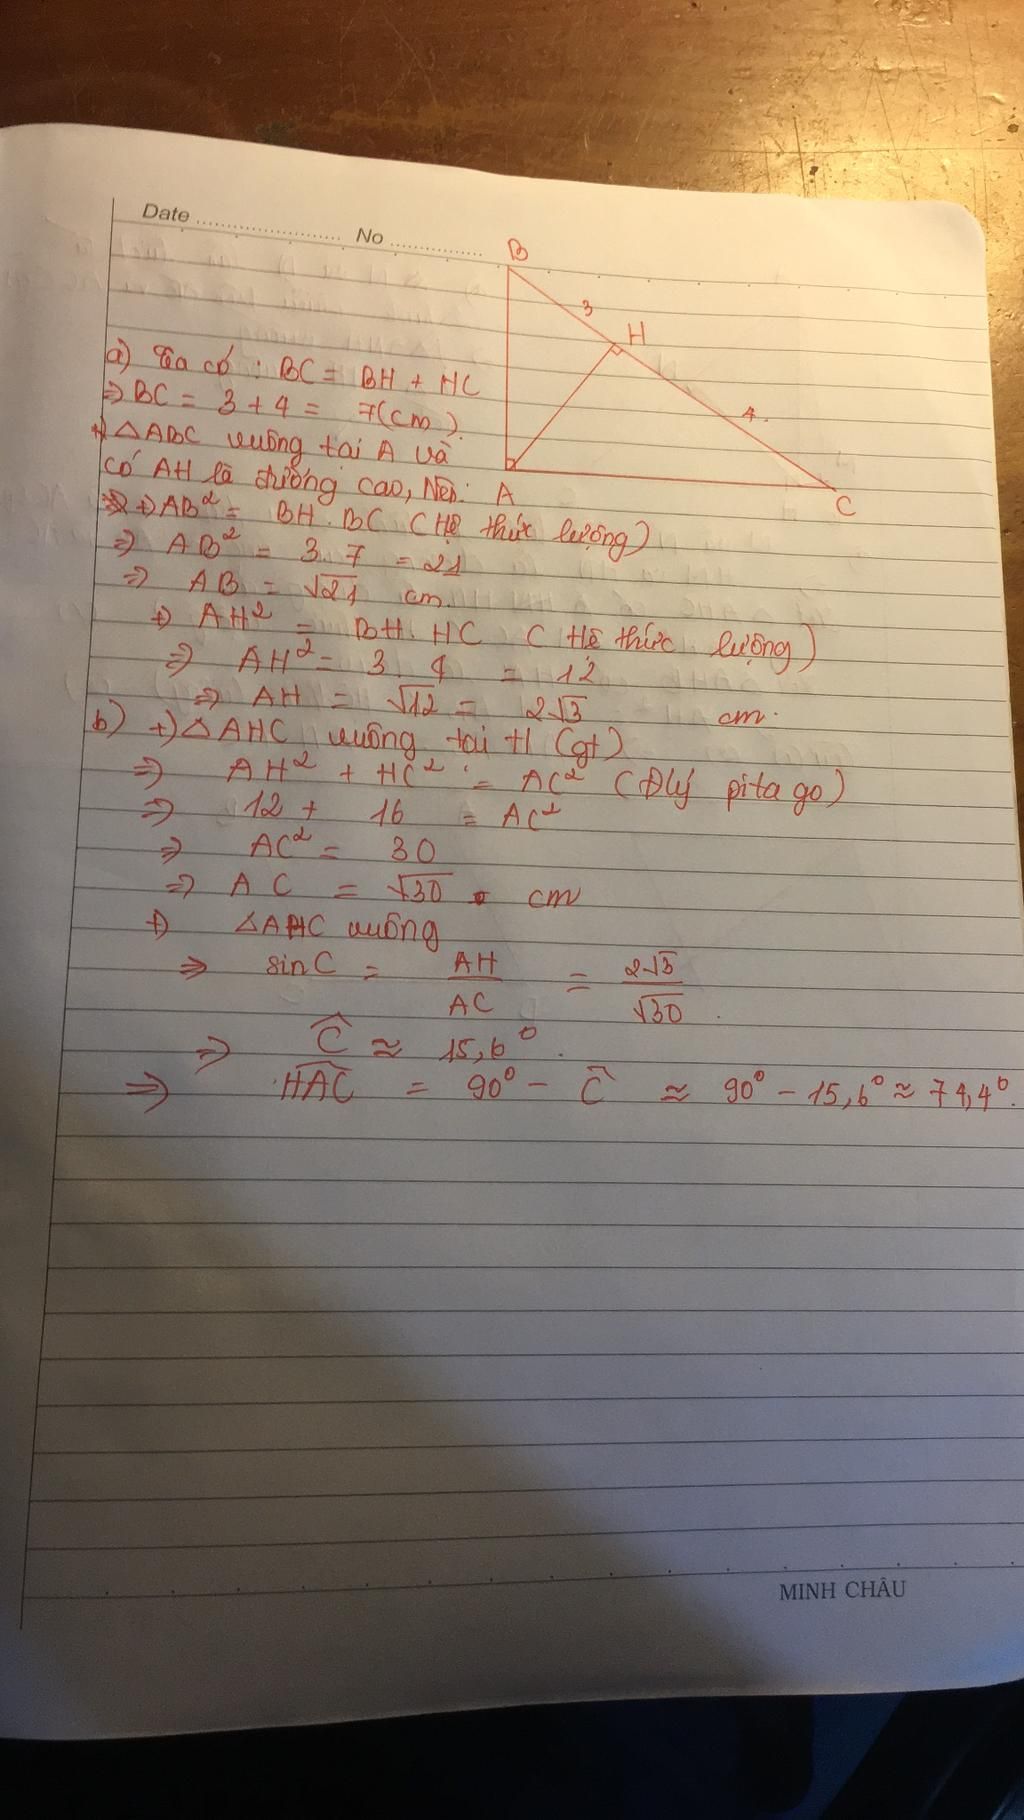 Date ........................ No ................
B
3
H
4
A
C
a) Ta có : BC = BH + HC
=> BC = 3 + 4 = 7(cm).
+) △ABC vuông tại A và
có AH là đường cao, Nên:
+) AB² = BH . BC (Hệ thức lượng)
=> AB² = 3. 7 = 21
=> AB = √21 cm.
+) AH² = BH. HC (Hệ thức lượng)
=> AH² = 3. 4 = 12
=> AH = √12 = 2√3 cm.
b) +) △AHC vuông tại H (gt)
=> AH² + HC² = AC² (Đlý pitago)
=> 12 + 16 = AC²
=> AC² = 30
=> AC = √30 cm
+) △AHC vuông
=> sinC = AH/AC = 2√3/√30 .
=> Ĉ ≈ 15,6°.
=> HAC = 90° - Ĉ ≈ 90° - 15,6° ≈ 74,4°.
MINH CHÂU